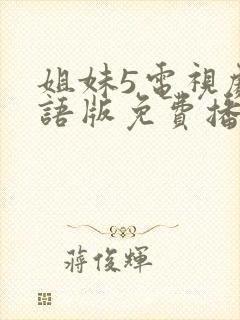 姐妹5電視劇
語版免費播
蔣俊輝